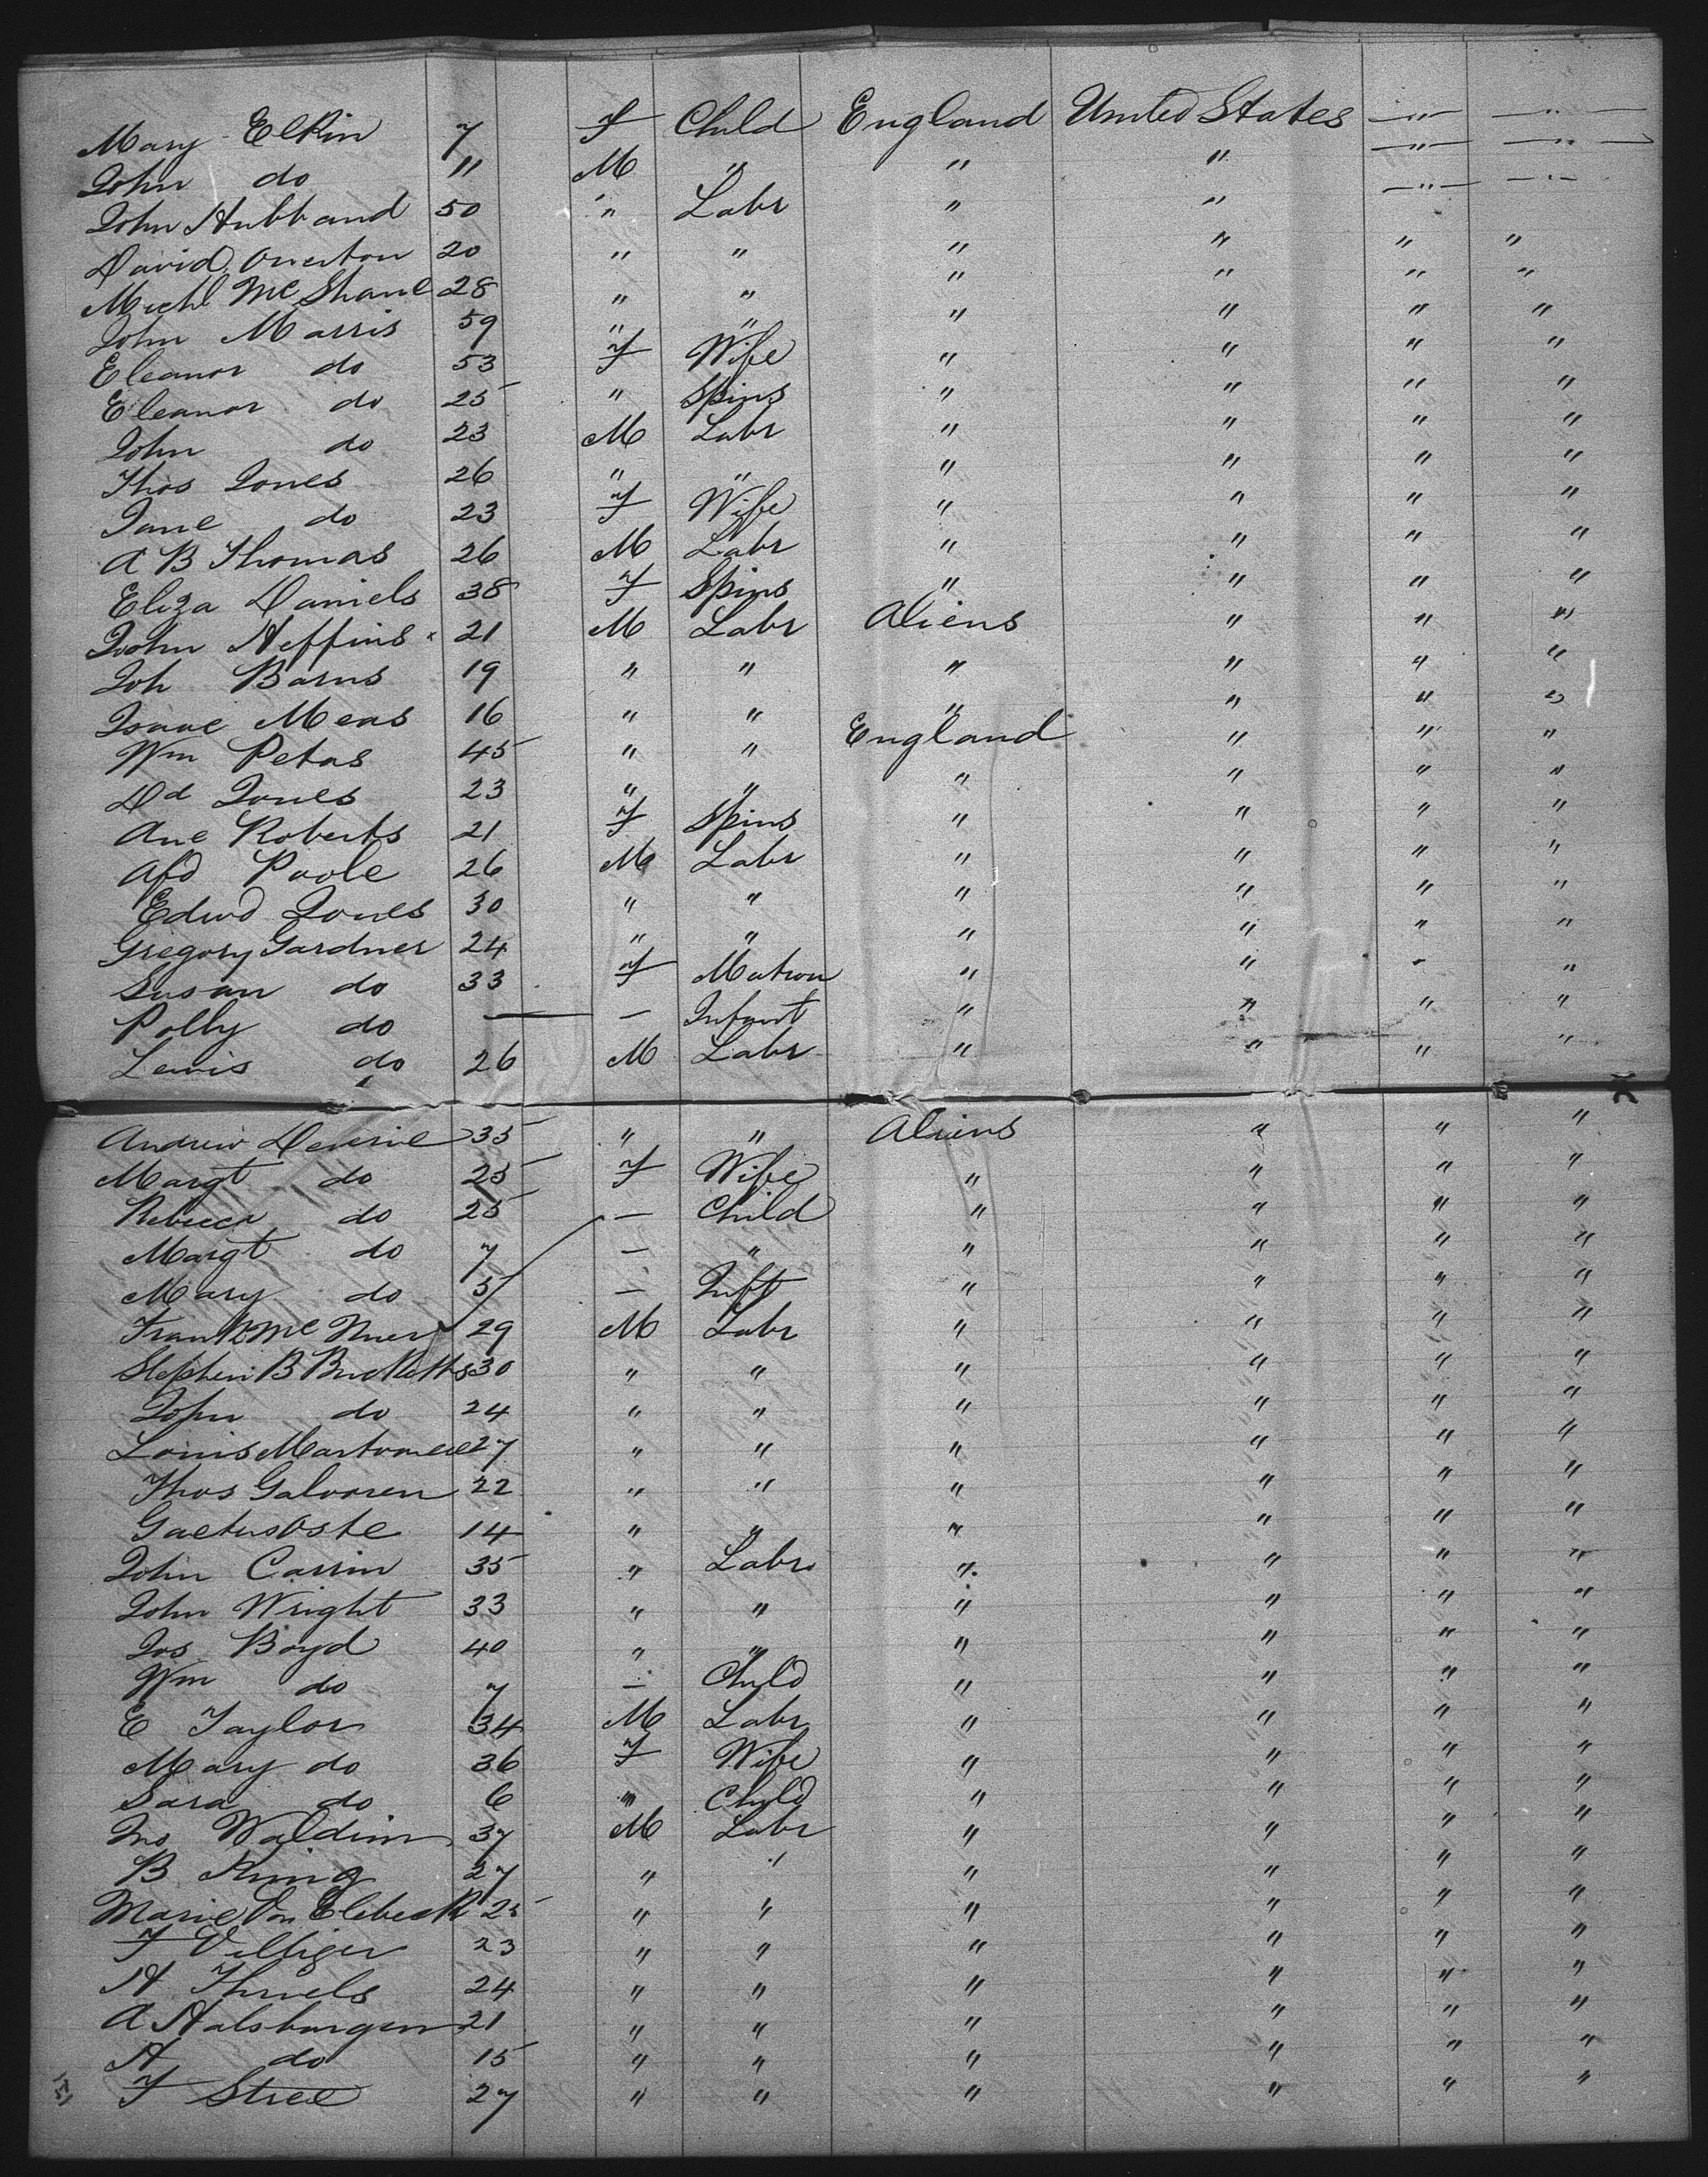 Mary Elkin 7 F Child England United States " "
John do 11 M " " " " "
John Hubband 50 " Labr " " " "
David Overton 20 " " " " " "
Michl McShane 28 " " " " " "
John Marris 59 " " " " " "
Eleanor do 53 F Wife " " " "
Eleanor do 25 " Spins " " " "
John do 23 M Labr " " " "
Thos Jones 26 " " " " " "
Jane do 23 F Wife " " " "
A B Thomas 26 M Labr " " " "
Eliza Daniels 38 F Spins " " " "
John Heffins 21 M Labr Aliens " " "
Joh Barns 19 " " " " " "
Isaac Meas 16 " " " " " "
Wm Petas 45 " " England " " "
Dd Jones 23 " " " " " "
Ane Roberts 21 F Spins " " " "
Afd Poole 26 M Labr " " " "
Edwd Jones 30 " " " " " "
Gregory Gardner 24 " " " " " "
Susan do 33 F Matron " " " "
Polly do — — Infant " " " "
Lewis do 26 M Labr " " " "
Andrew Deverie 35 " " Aliens " " "
Margt do 25 F Wife " " " "
Rebecca do 25 — Child " " " "
Margt do 7 — " " " " "
Mary do 5 — Inft " " " "
Frank Mc 29 M Labr " " " "
Stephen B 30 " " " " " "
John do 24 " " " " " "
Louis 27 " " " " " "
Thos Galvoren 22 " " " " " "
14 " " " " " "
John Carrin 35 " Labr " " " "
John Wright 33 " " " " " "
Jos Boyd 40 " " " " " "
Wm do 7 — Child " " " "
E Taylor 34 M Labr " " " "
Mary do 36 F Wife " " " "
Sara do 6 " Child " " " "
Jno Waldim 37 M Labr " " " "
B King 27 " " " " " "
Marie Van Elebeck 25 " " " " " "
F Villiger 23 " " " " " "
H Thuels 24 " " " " " "
A Halsburgen 21 " " " " " "
H do 15 " " " " " "
F Stree 27 " " " " " "